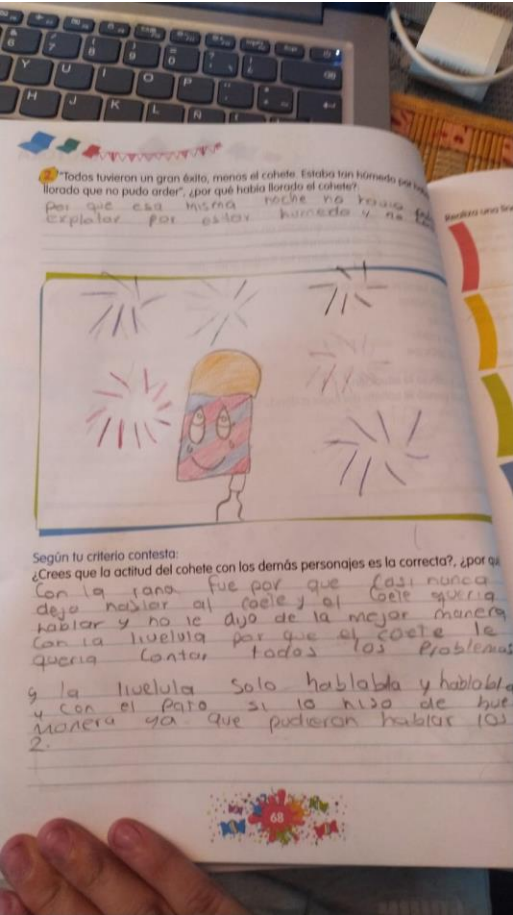 2. "Todos tuvieron un gran éxito, menos el cohete. Estaba tan húmedo por
llorado que no pudo arder", ¿por qué había llorado el cohete?
por que esa misma noche no
explotar por estar humedo y no
Realiza una
Según tu criterio contesta:
¿Crees que la actitud del cohete con los demás personajes es la correcta?, ¿por qu
Con la rana fue por que casi nunca
dejo hablar al coete y el coete queria
hablar y no le dijo de la mejor manera
Con la livelula por que el coete le
queria contar todos los Problemas
y la livelula solo hablabla y hablabla
y con el Pato si lo hiso de bue
Manera ya que pudieron hablar los
2.
68